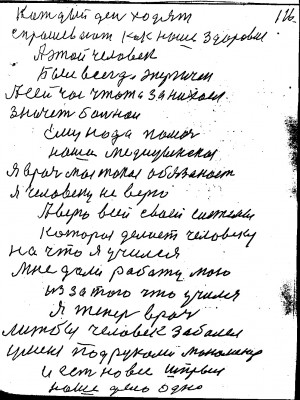 116.
Каждый ден ходят
спрашевают как наше здоровье
А этой человек
Был всегда энергичен
А сейчас чтота занихал
значет болной
Ему нода помоч
наша медицинская
Я врач моя такая обязаност
Я человеку не верю
А верю всей своей системы
Которая делает человеку
на что я учился
Мне дали работу мою
из за того что учился
Я тепер врач
лижбы человек заболел
у меня под руками
и ест новее
наше дело одно